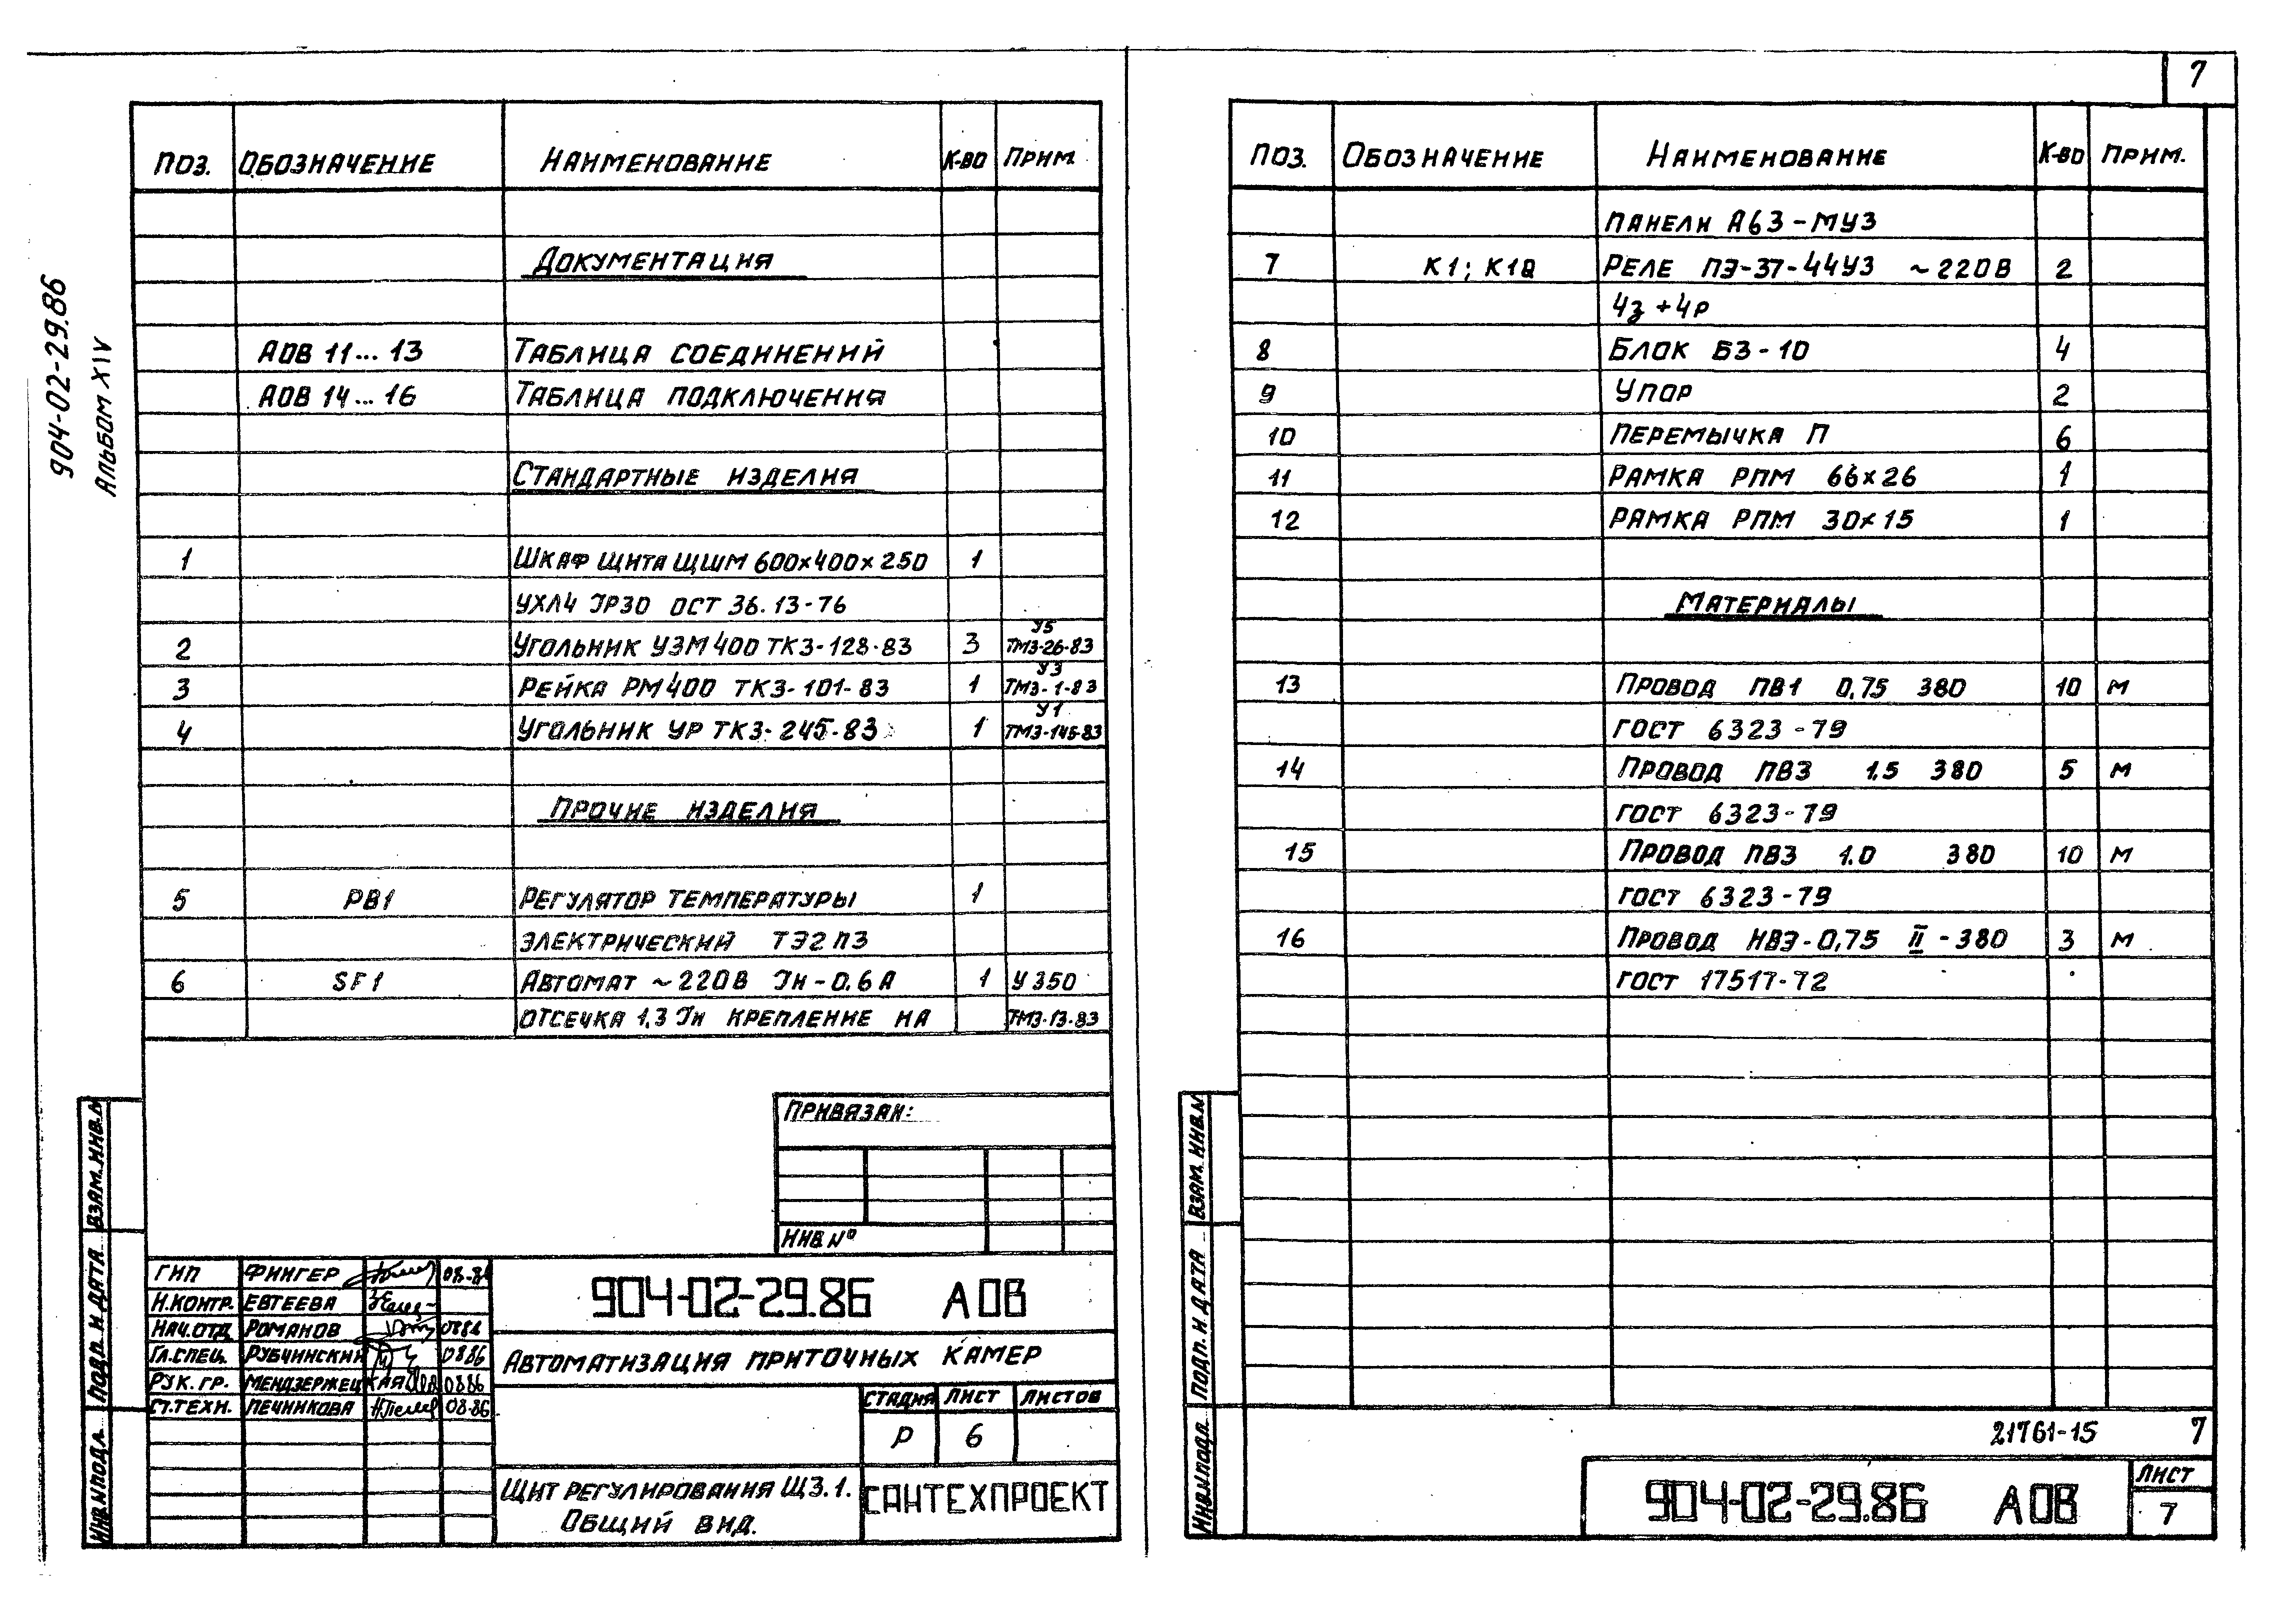 904-02-29.86
Альбом XIV
Поз. Обозначение Наименование К-во Прим.
Документация
АОВ 11...13 Таблица соединений
АОВ 14...16 Таблица подключения
Стандартные изделия
1 Шкаф щита ЩШМ 600х400х250 1
УХЛ4 IP30 ОСТ 36.13-76
2 Угольник УЗМ400 ТКЗ-128-83 3 У5 ТМЗ-26-83
3 Рейка РМ400 ТКЗ-101-83 1 У3 ТМЗ-1-83
4 Угольник УР ТКЗ-245-83 1 У1 ТМЗ-145-83
Прочие изделия
5 РВ1 Регулятор температуры 1
электрический ТЭ2ПЗ
6 SF1 Автомат ~220В Iн-0,6А 1 У350
отсечка 1,3 Iн крепление на ТМЗ-13-83
Привязан:
Инв №
ГИП Фингер 08-86
Н.контр. Евтеева
Нач.отд Романов 0886
Гл.спец. Рубчинский 0886
Рук.гр. Мендзержецкая 0886
Ст.техн. Печникова 08-86
904-02-29.86 АОВ
Автоматизация приточных камер
Стадия Лист Листов
Р 6
Щит регулирования ЩЗ.1.
Общий вид.
САНТЕХПРОЕКТ
Взам.инв.№
Подп. и дата
Инв.№подл.
7
Поз. Обозначение Наименование К-во Прим.
панели А63-МУ3
7 К1; К1Q Реле ПЭ-37-44У3 ~220В 2
4з+4р
8 Блок БЗ-10 4
9 Упор 2
10 Перемычка П 6
11 Рамка РПМ 66х26 1
12 Рамка РПМ 30х15 1
Материалы
13 Провод ПВ1 0,75 380 10 м
ГОСТ 6323-79
14 Провод ПВ3 1.5 380 5 м
ГОСТ 6323-79
15 Провод ПВ3 1.0 380 10 м
ГОСТ 6323-79
16 Провод НВЭ-0,75 II-380 3 м
ГОСТ 17517-72
Взам.инв.№
Подп. и дата
Инв.№подл.
21761-15 7
904-02-29.86 АОВ
Лист
7